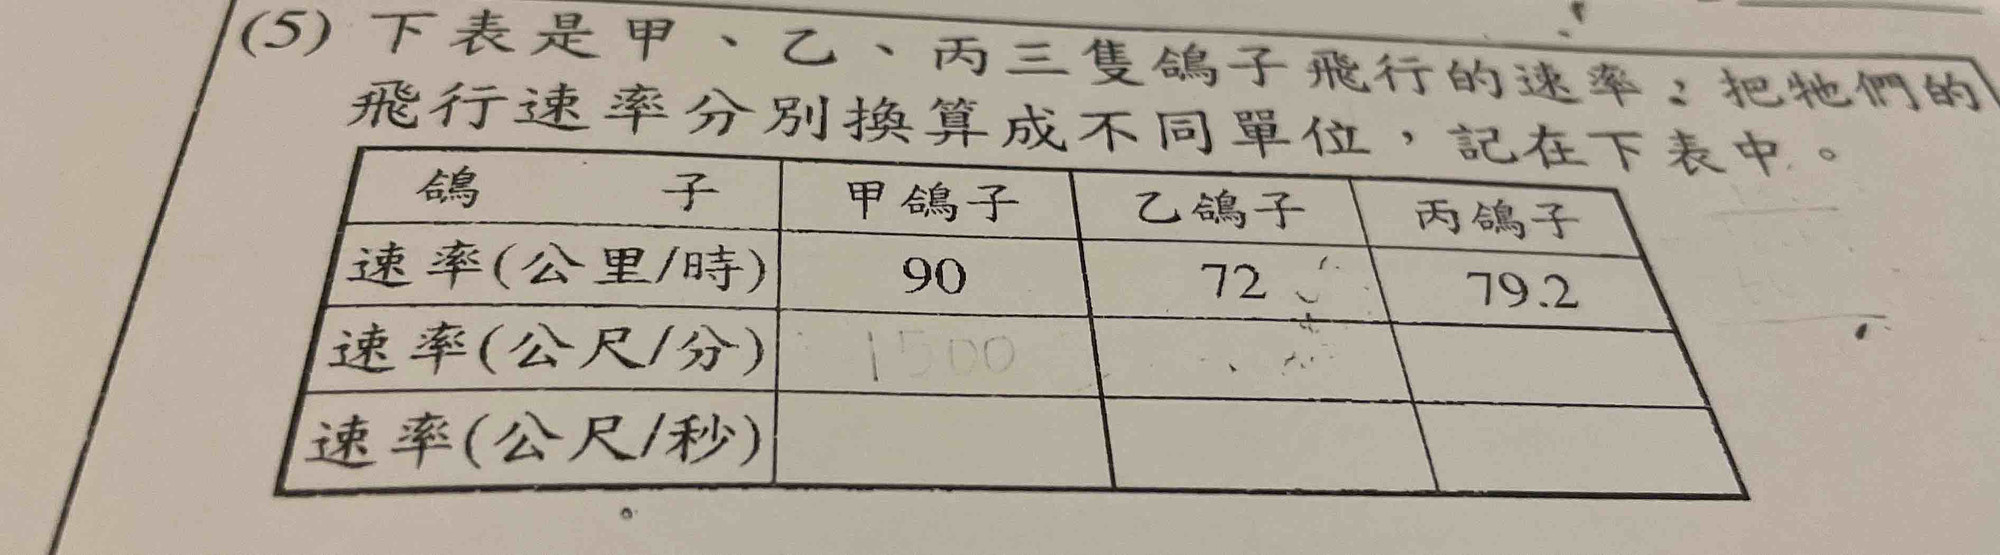 (5) 下表是甲、乙、丙三隻鴿子飛行的速率；把牠們的
飛行速率分別換算成不同單位，記在下表中。
鴿子 甲鴿子 乙鴿子 丙鴿子
速率(公里/時) 90 72 79.2
速率(公尺/分) 1500
速率(公尺/秒)